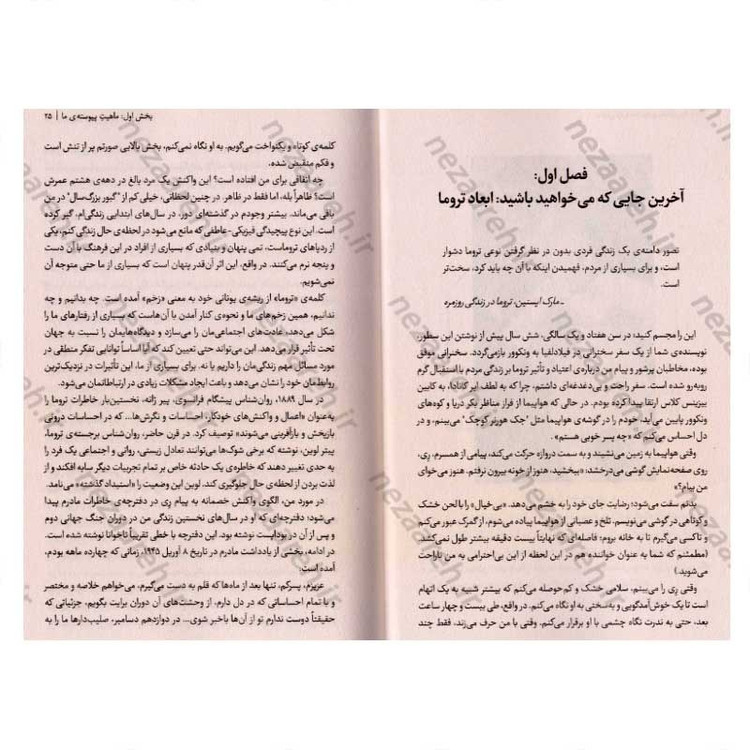 فصل اول:
آخرین جایی که می‌خواهید باشید: ابعاد تروما
تصور دامنه‌ی یک زندگی فردی بدون در نظر گرفتن نوعی تروما دشوار
است، و برای بسیاری از مردم، فهمیدن اینکه با آن چه باید کرد، سخت‌تر
است.
ـ مارک اپستین، تروما در زندگی روزمره
این را مجسم کنید: در سن هفتاد و یک سالگی، شش سال پیش از نوشتن این سطور،
نویسنده‌ی شما از یک سفر سخنرانی در فیلادلفیا به ونکوور بازمی‌گردد. سخنرانی موفق
بوده، مخاطبان پرشور و پیام من درباره‌ی اعتیاد و تأثیر تروما بر زندگی مردم با استقبال گرم
روبه‌رو شده است. سفر راحت و بی‌دغدغه‌ای داشتم، چرا که به لطف ایر کانادا، به کابین
بیزینس کلاس ارتقا پیدا کرده بودم. در حالی که هواپیما از فراز مناظر بکر دریا و کوه‌های
ونکوور پایین می‌آید، خودم را در گوشه‌ی هواپیما مثل "جک هورنر کوچک" می‌بینم، و در
دل احساس می‌کنم که «چه پسر خوبی هستم».
وقتی هواپیما به زمین می‌نشیند و به سمت دروازه حرکت می‌کند، پیامی از همسرم، رِی،
روی صفحه‌نمایش گوشی می‌درخشد: «ببخشید، هنوز از خونه بیرون نرفتم. هنوز می‌خوای
من بیام؟»
بدنم سفت می‌شود؛ رضایت جای خود را به خشم می‌دهد. «بی‌خیال» را با لحن خشک
و کوتاهی در گوشی می‌نویسم. تلخ و عصبانی از هواپیما پیاده می‌شوم، از گمرک عبور می‌کنم
و تاکسی می‌گیرم تا به خانه بروم؛ فاصله‌ای که نهایتاً بیست دقیقه بیشتر طول نمی‌کشد.
(مطمئنم که شما به عنوان خواننده هم در این لحظه از این بی‌احترامی به من ناراحت
می‌شوید.)
وقتی رِی را می‌بینم، سلامی خشک و کم‌حوصله می‌کنم که بیشتر شبیه به یک اتهام
است تا یک خوش‌آمدگویی و به‌سختی به او نگاه می‌کنم. در واقع، طی بیست و چهار ساعت
بعد، حتی به ندرت نگاه چشمی با او برقرار می‌کنم. وقتی با من حرف می‌زند، فقط چند
بخش اول: ماهیت پیوسته‌ی ما | ۲۵
کلمه‌ی کوتاه و یکنواخت می‌گویم. به او نگاه نمی‌کنم، بخش بالایی صورتم پر از تنش است
و فکم منقبض شده.
چه اتفاقی برای من افتاده است؟ این واکنش یک مرد بالغ در دهه‌ی هشتم عمرش
است؟ ظاهراً بله، اما فقط در ظاهر. در چنین لحظاتی، خیلی کم از "گبور بزرگ‌سال" در من
باقی می‌ماند. بیشتر وجودم در گذشته‌ای دور، در سال‌های ابتدایی زندگی‌ام، گیر کرده
است. این نوع پیچیدگی فیزیکی-عاطفی که مانع می‌شود در لحظه‌ی حال زندگی کنم، یکی
از ردپاهای تروماست، نمی پنهان و بنیادی که بسیاری از افراد در این فرهنگ با آن دست
و پنجه نرم می‌کنند. در واقع، این اثر آن‌قدر پنهان است که بسیاری از ما حتی متوجه آن
نمی‌شویم.
کلمه‌ی «تروما» از ریشه‌ی یونانی خود به معنی «زخم» آمده است. چه بدانیم و چه
ندانیم، همین زخم‌های ما و نحوه‌ی کنار آمدن با آن‌هاست که بسیاری از رفتارهای ما را
شکل می‌دهد، عادت‌های اجتماعی‌مان را می‌سازد و دیدگاه‌هایمان را نسبت به جهان
تحت تأثیر قرار می‌دهد. این می‌تواند حتی تعیین کند که آیا اساساً توانایی تفکر منطقی در
مورد مسائل مهم زندگی‌مان را داریم یا نه. برای بسیاری از ما، این تأثیرات در نزدیک‌ترین
روابط‌مان خود را نشان می‌دهد و باعث ایجاد مشکلات زیادی در ارتباطاتمان می‌شود.
در سال ۱۸۸۹، روان‌شناس پیشگام فرانسوی، پیر ژانه، نخستین‌بار خاطرات تروما را
به‌عنوان «اعمال و واکنش‌های خودکار، احساسات و نگرش‌ها... که در احساسات درونی
بازپخش و بازآفرینی می‌شوند» توصیف کرد. در قرن حاضر، روان‌شناس برجسته‌ی تروما،
پیتر لوین، نوشته که برخی شوک‌ها می‌توانند تعادل زیستی، روانی و اجتماعی یک فرد را
به حدی تغییر دهند که خاطره‌ی یک حادثه خاص بر تمام تجربیات دیگر سایه افکند و از
لذت بردن از لحظه‌ی حال جلوگیری کند. لوین این وضعیت را «استبداد گذشته» می‌نامد.
در مورد من، الگوی واکنش خصمانه به پیام رِی در دفترچه‌ی خاطرات مادرم پیدا
می‌شود؛ دفترچه‌ای که او در سال‌های نخستین زندگی من در دوران جنگ جهانی دوم
و پس از آن در بوداپست نوشته بود. این دفترچه با خطی تقریباً ناخوانا نوشته شده است.
در ادامه، بخشی از یادداشت مادرم در تاریخ ۸ آوریل ۱۹۴۵، زمانی که چهارده ماهه بودم،
آمده است:
عزیزم، پسرکم، تنها بعد از ماه‌ها که قلم به دست می‌گیرم، می‌خواهم خلاصه و مختصر
و با تمام احساساتی که در دل دارم، از وحشت‌های آن دوران برایت بگویم، جزئیاتی که
حقیقتاً دوست ندارم تو از آن‌ها باخبر شوی... در دوازدهم دسامبر، صلیب‌دارها ما را به
nezaareh.ir